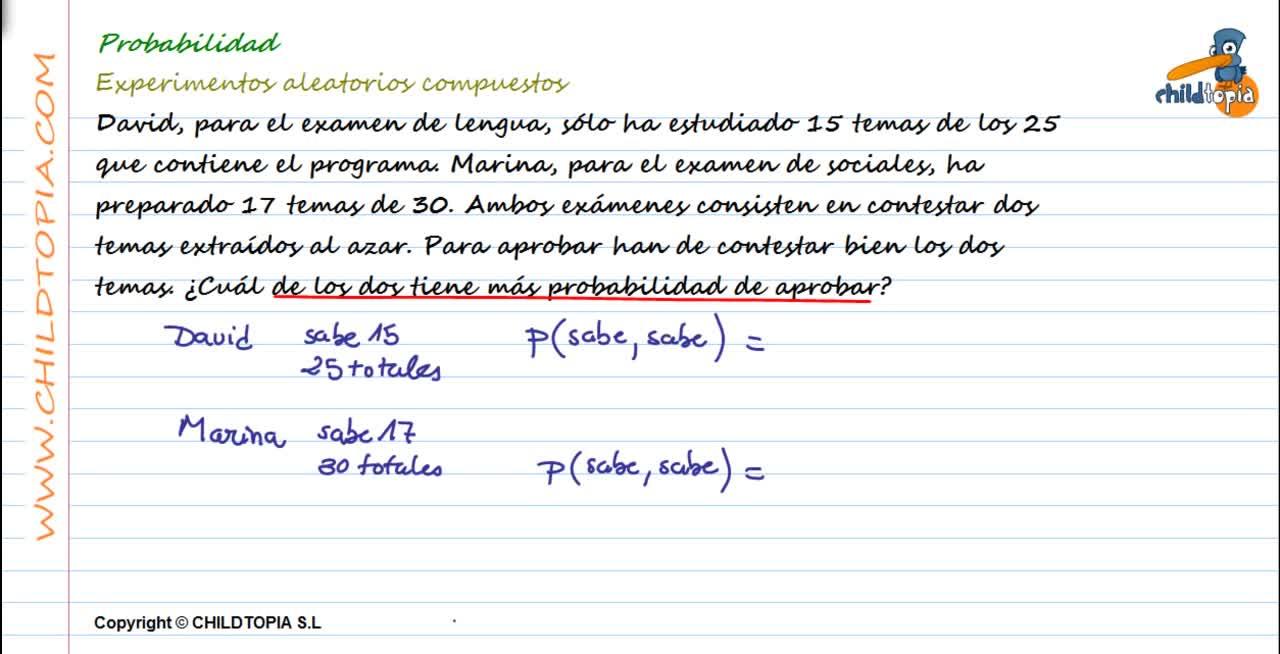 Probabilidad
Experimentos aleatorios compuestos
childtopia
David, para el examen de lengua, sólo ha estudiado 15 temas de los 25
que contiene el programa. Marina, para el examen de sociales, ha
preparado 17 temas de 30. Ambos exámenes consisten en contestar dos
temas extraídos al azar. Para aprobar han de contestar bien los dos
temas. ¿Cuál de los dos tiene más probabilidad de aprobar?
David sabe 15 P(sabe, sabe) =
25 totales
Marina sabe 17
30 totales P(sabe, sabe) =
WWW.CHILDTOPIA.COM
Copyright © CHILDTOPIA S.L